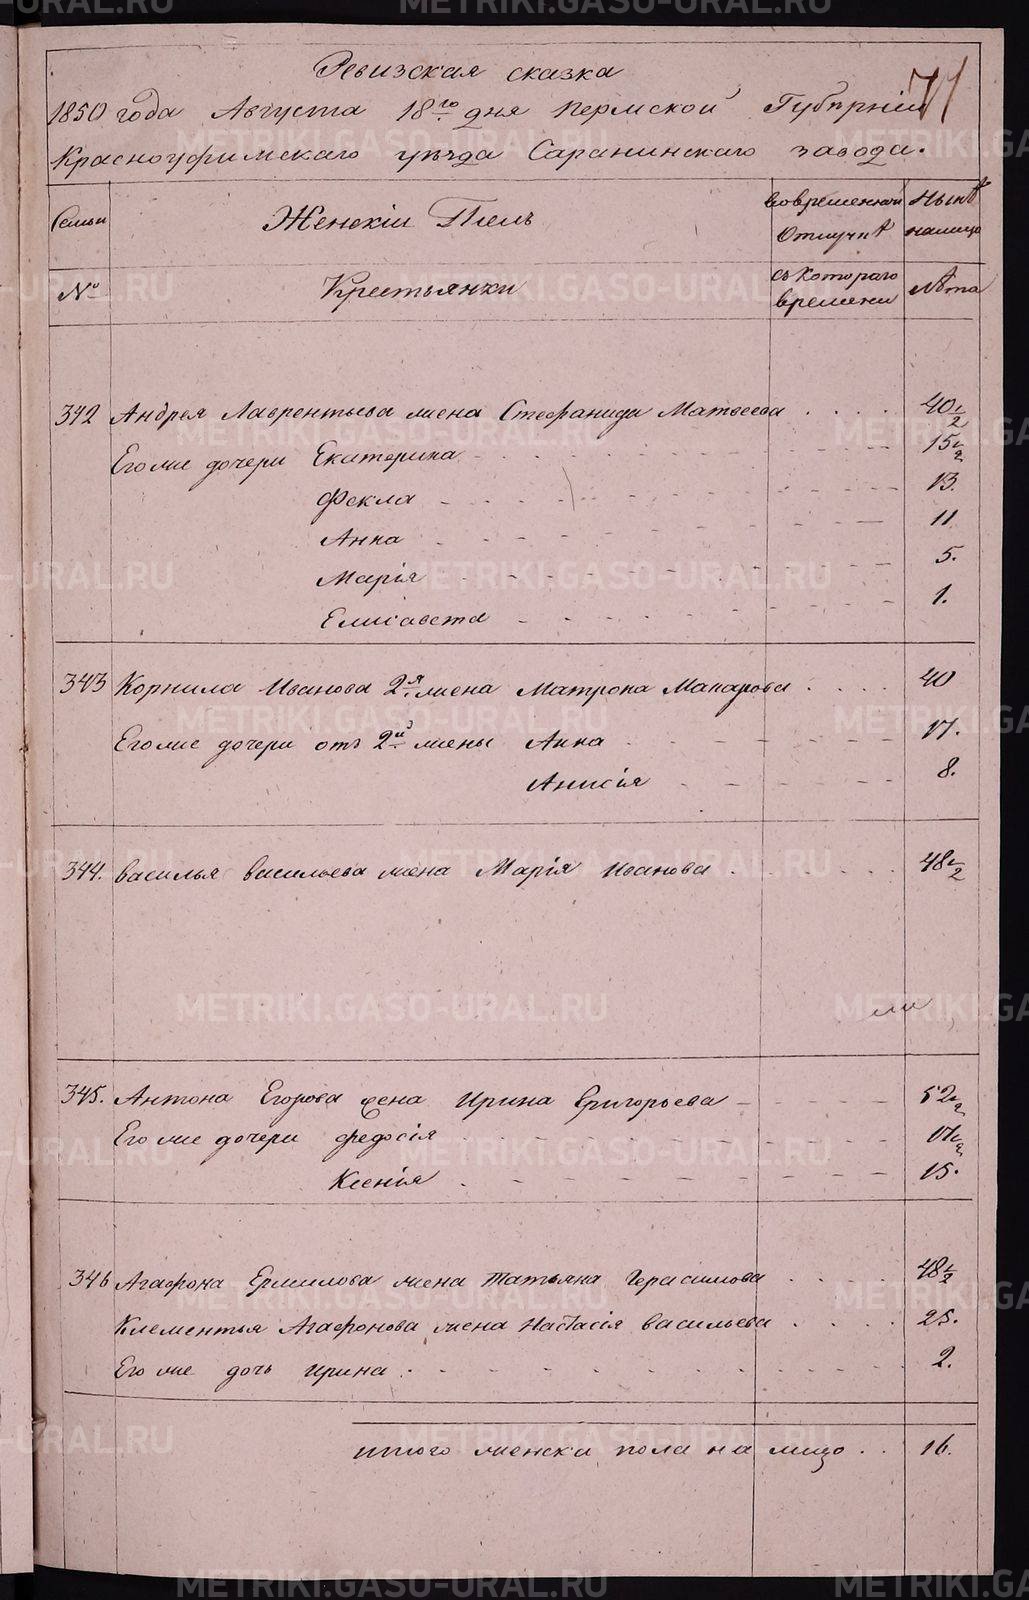 71
Ревизская сказка
1850 года Августа 18го дня Пермской Губернiи
Красноуфимскаго уѣзда Саранинскаго завода.
Семьи
Женскiй Полъ
Во временной Отлучкѣ
Нынѣ на лицо
№
Крестьянки
съ Котораго времени
Лѣта
342 Андрея Лаврентьева жена Стефанида Матвеева . . . . 40 1/2
Его же дочери Екатерина 15 1/2
Фекла 13.
Анна 11
Марiя 5.
Елисавета 1.
343 Корнила Иванова 2я жена Матрона Макарова . . . . 40
Его же дочери отъ 2й жены Анна 17.
Анисiя 8.
344. Василья Васильева жена Марiя Иванова 48 1/2
345. Антона Егорова жена Ирина Григорьева 52 1/2
Его же дочери Федосiя 17 1/2
Ксенiя 15.
346 Агафона Ермилова жена Татьяна Герасимова 48 1/2
Клементья Агафонова жена Настасiя Васильева 25.
Его же дочь Ирина 2.
итого женска пола на лицо . . 16.
METRIKI.GASO-URAL.RU